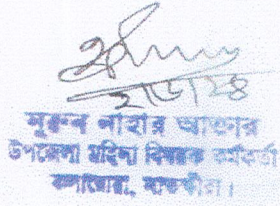 ২/৬/২৪
নুরুন নাহার আক্তার
উপজেলা মহিলা বিষয়ক কর্মকর্তা
কলারোয়া, সাতক্ষীরা।